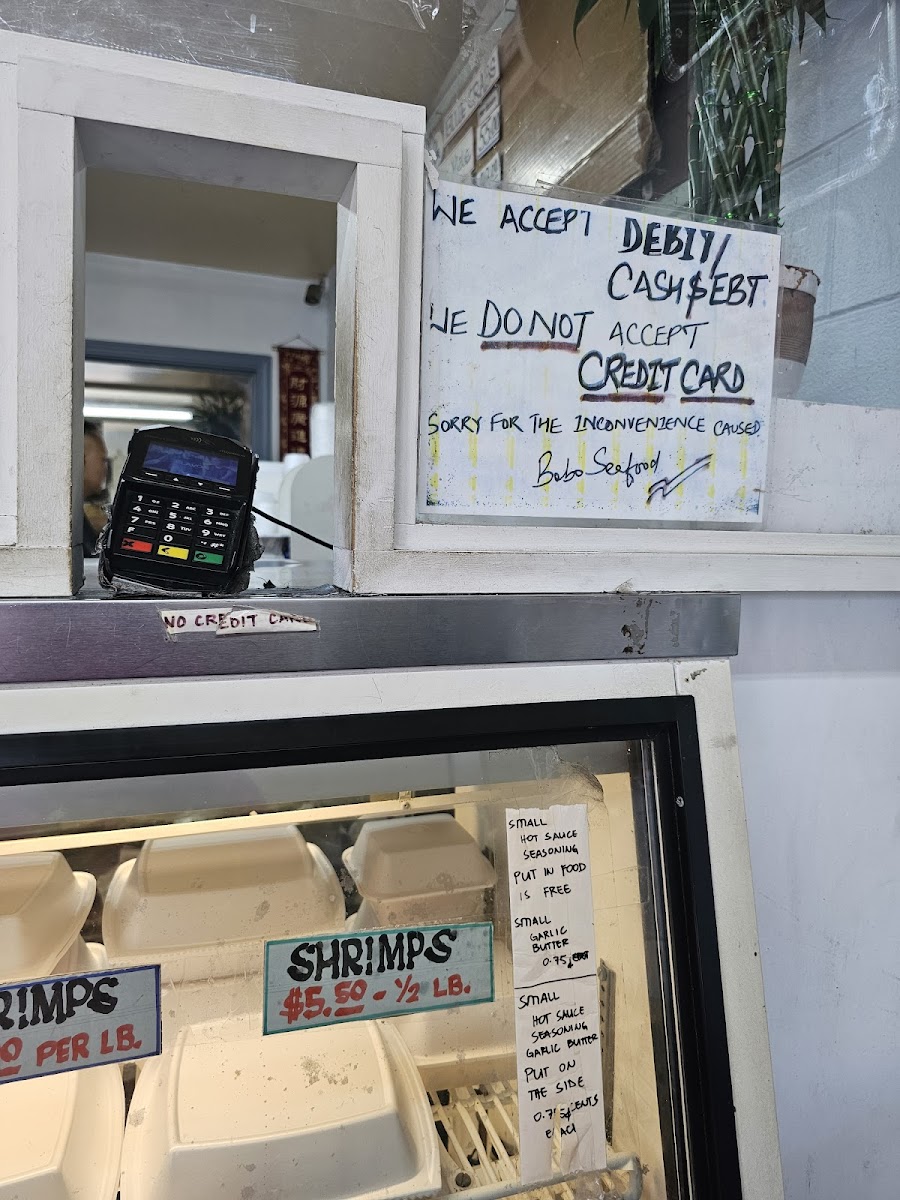 WE ACCEPT DEBIT/
CASH$EBT
WE DO NOT ACCEPT
CREDIT CARD
SORRY FOR THE INCONVENIENCE CAUSED
Bobo Seafood
1 2 3
4 5 6
7 8 9
F 0
NO CREDIT CARD
SMALL
HOT SAUCE
SEASONING
PUT IN FOOD
IS FREE
SMALL
GARLIC
BUTTER
0.75¢
SHRIMPS
$5.50 - 1/2 LB.
RIMPS
0 PER LB.
SMALL
HOT SAUCE
SEASONING
GARLIC BUTTER
PUT ON
THE SIDE
0.75 CENTS
EACH